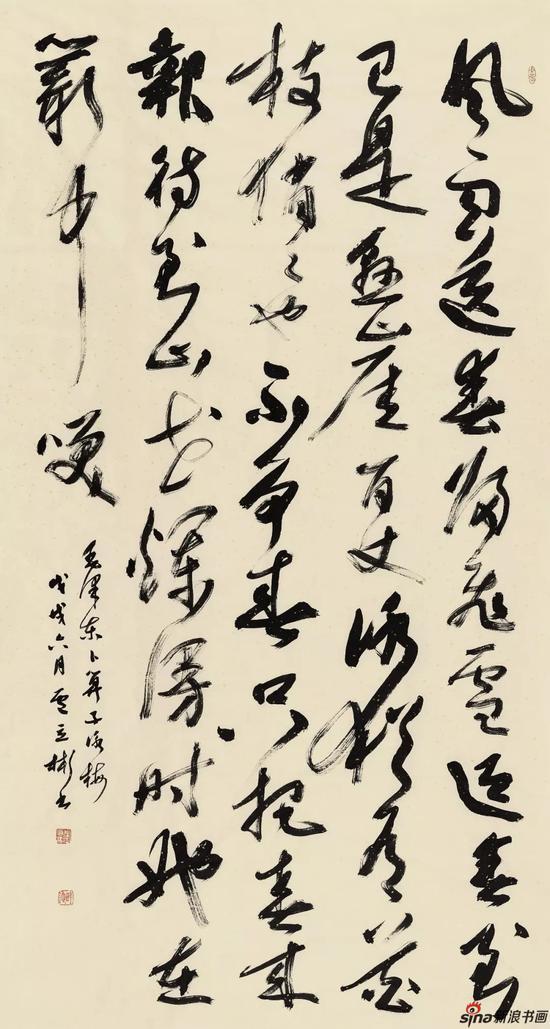 风雨送春归飞雪迎春到
已是悬崖百丈冰犹有花
枝俏々也不争春只把春来
報待到山花烂漫时她在
丛中笑
毛泽东卜算子咏梅
戊戌六月立彬书
sina新浪书画